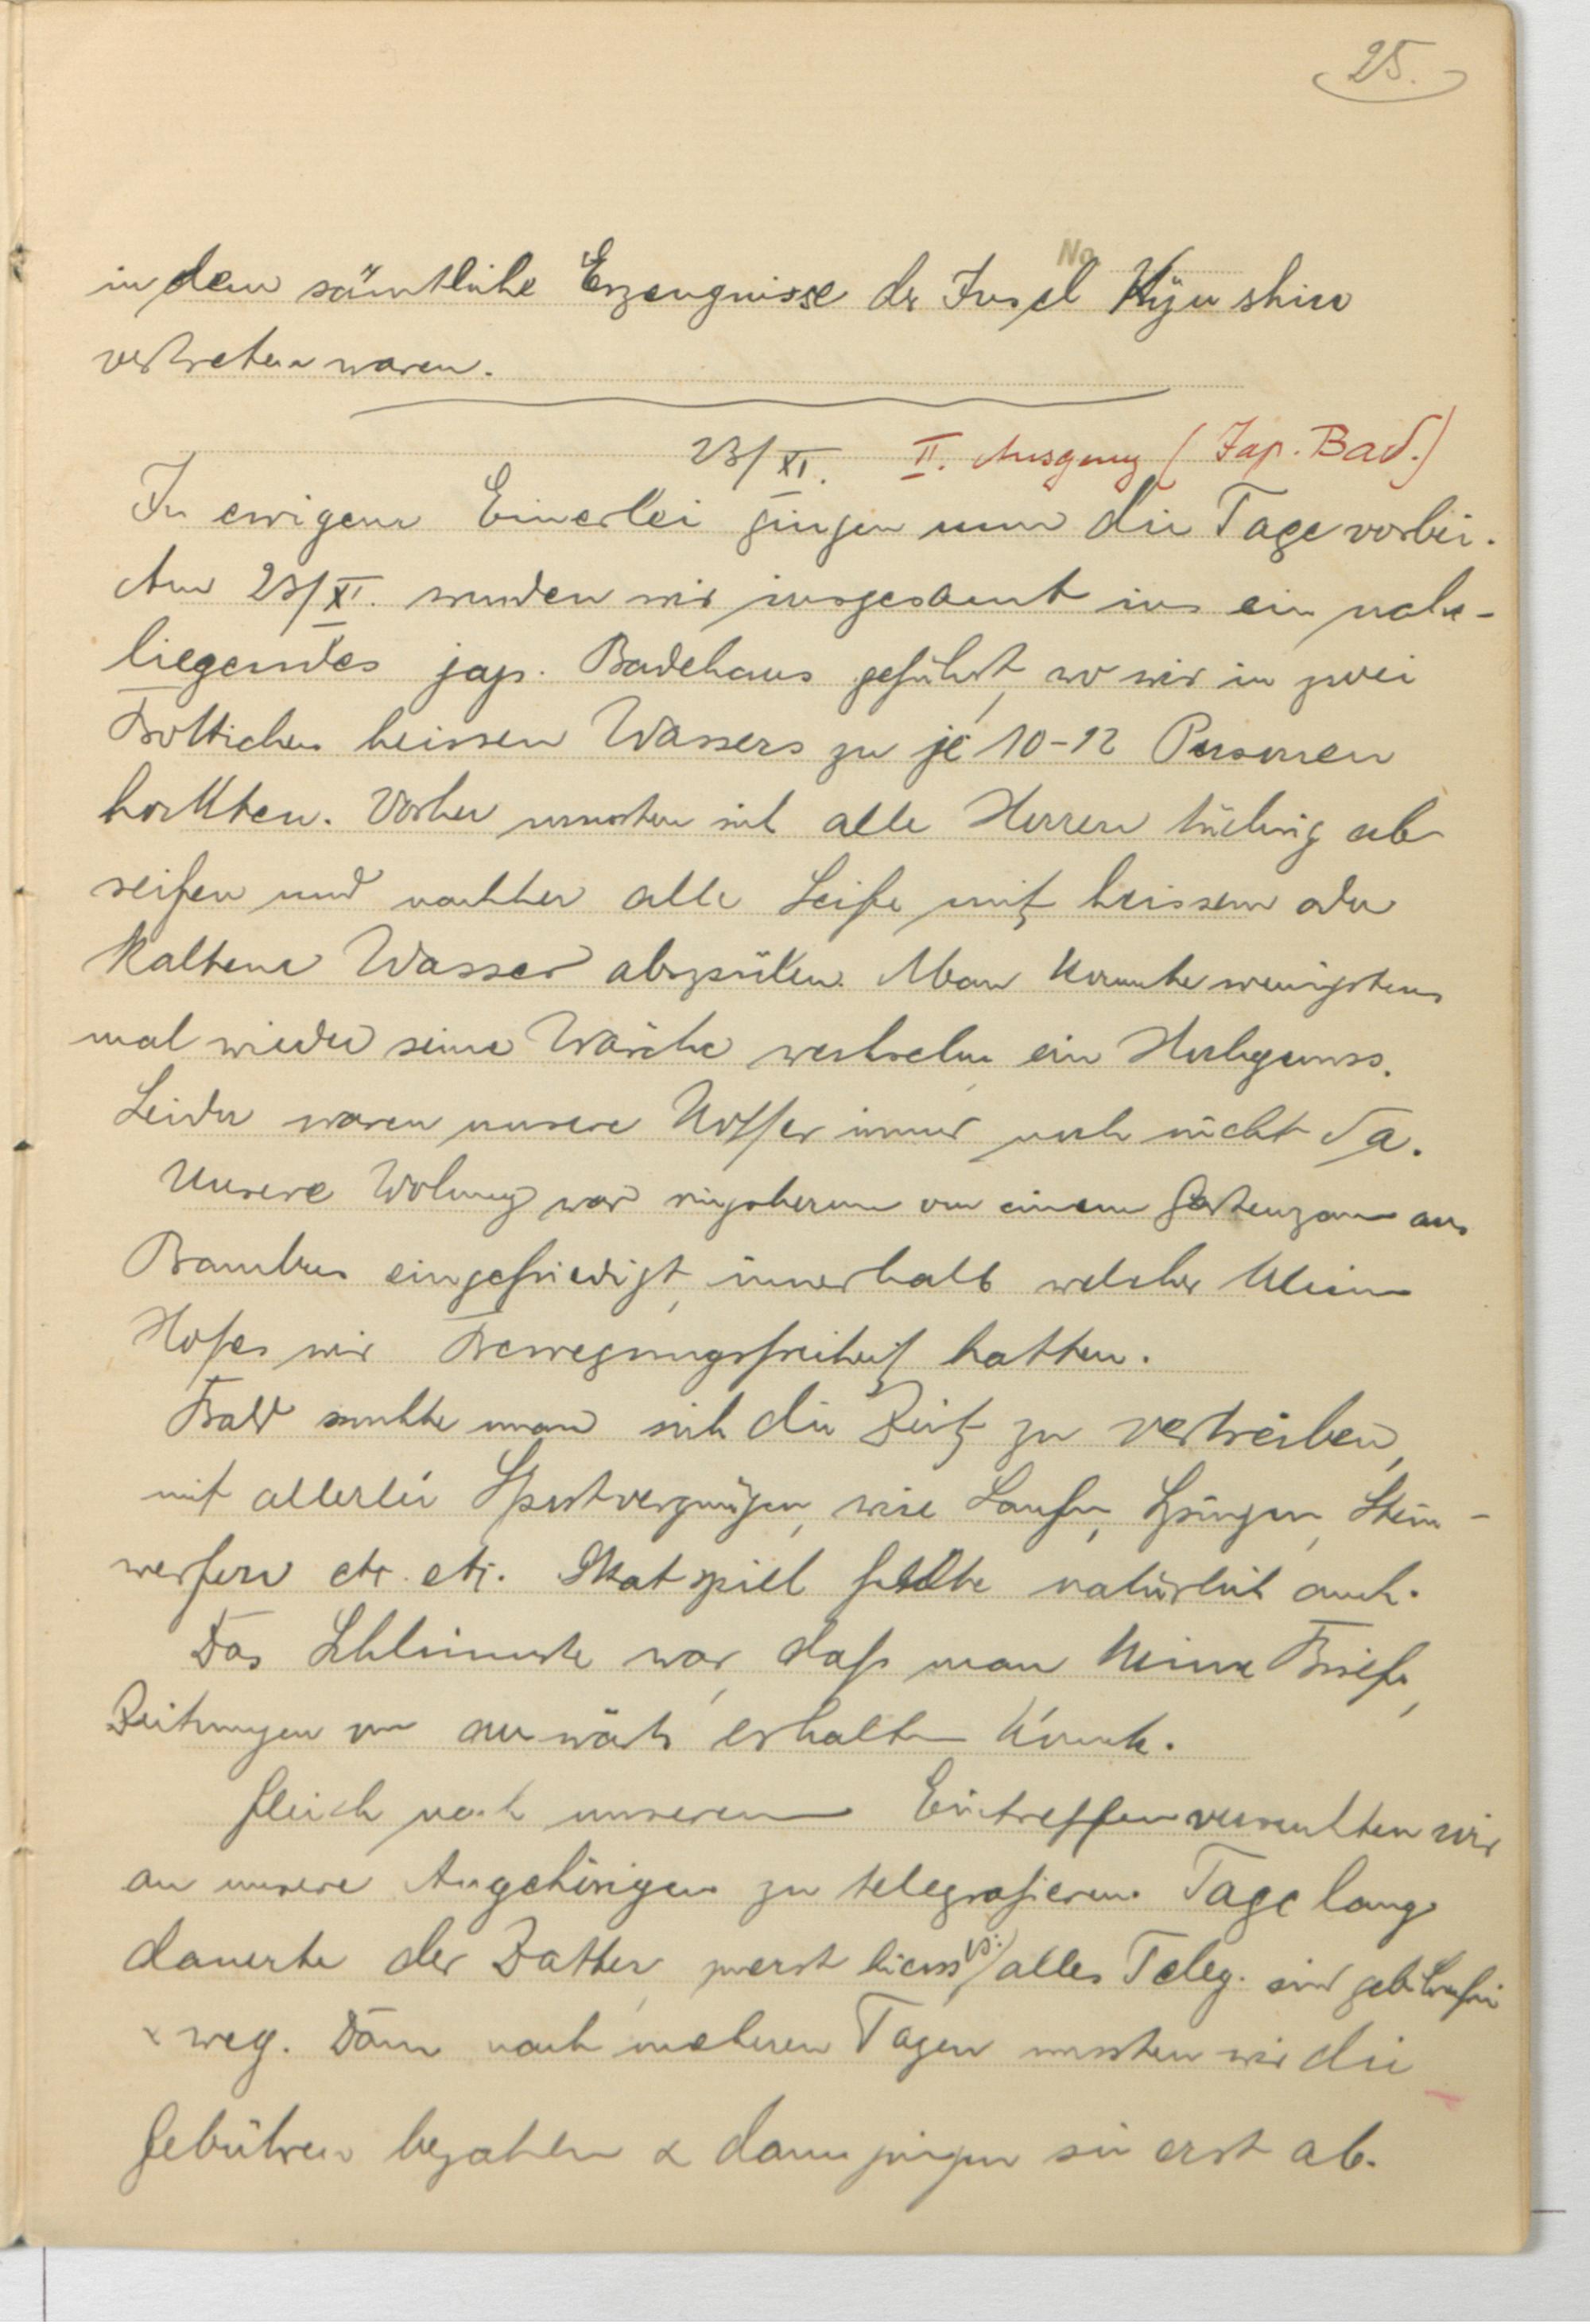 25.
No
in dem sämtliche Erzeugnisse der Insel Kyu shiu
vertreten waren.
23/XI. II. Ausgang (Jap. Bad.)
In ewigem Einerlei gingen nun die Tage vorbei.
Am 23/XI. wurden wir insgesamt in ein nahe-
liegendes jap. Badehaus geführt, wo wir in zwei
Bottichen heissen Wassers zu je 10-12 Personen
hockten. Vorher mussten sich alle Herren tüchtig ab-
seifen und nachher alle Seife mit heissem oder
kaltem Wasser abspülen. Man konnte wenigstens
mal wieder seine Wäsche wechseln, ein Hochgenuss.
Leider waren unsere Koffer immer noch nicht da.
Unsere Wohnung war ringsherum von einem Gartenzaun aus
Bambus eingefriedigt, innerhalb welcher kleinen
Hofes wir Bewegungsfreiheit hatten.
Bald suchte man sich die Zeit zu vertreiben,
mit allerlei Sportvergnügen, wie Laufen, Springen, Stein-
werfen etc. etc. Skatspiel fehlte natürlich auch.
Das Schlimmste war, dass man keine Briefe,
Zeitungen von auswärts erhalten konnte.
Gleich nach unserem Eintreffen versuchten wir
an unsere Angehörigen zu telegrafieren. Tage lang
dauerte der Datter, zuerst hiess es: alles Teleg. sind gebührenfrei
& weg. Dann nach mehreren Tagen mussten wir die
Gebühren bezahlen & dann gingen sie erst ab.